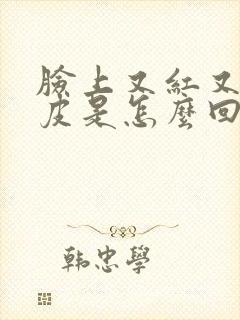 臉上又紅又
皮是怎麼回
韩忠學